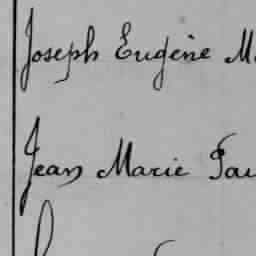 Joseph Eugène M
Jean Marie Pau